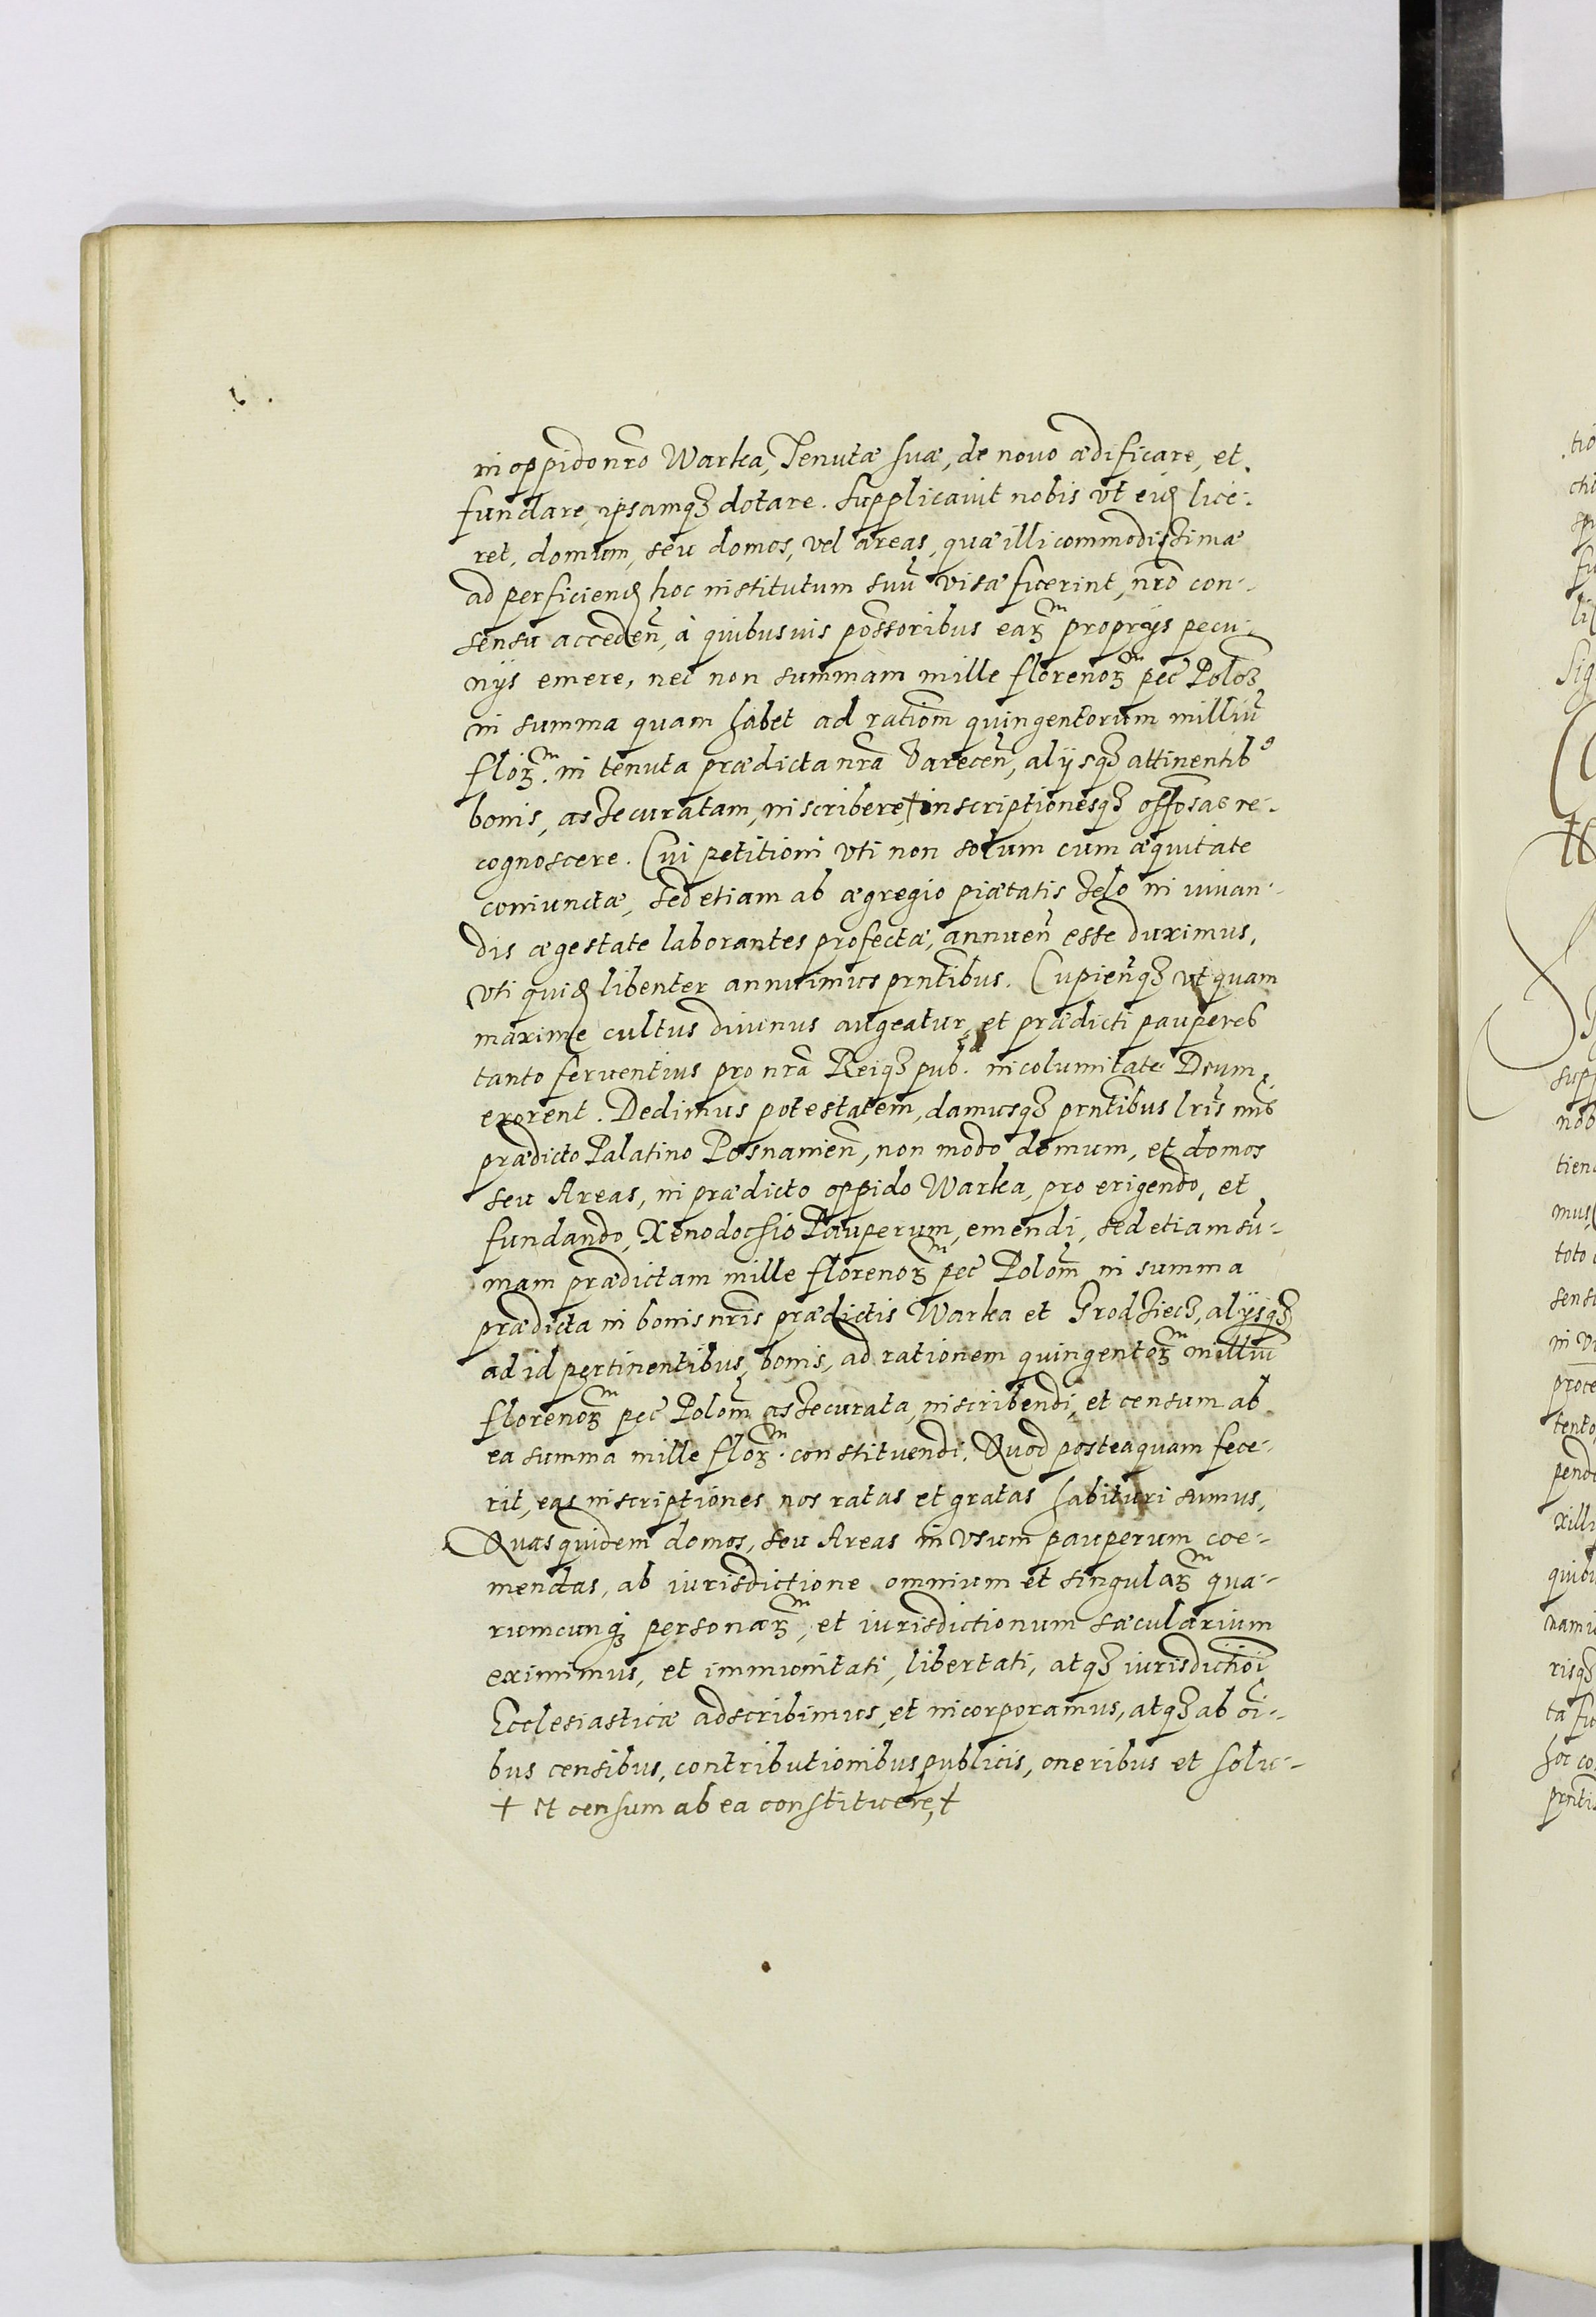 in oppido nrõ Warka, Tenutæ suæ, de novo ædificare, et
fundare, ipsamqꝫ dotare. Supplicavit nobis vt eiꝰ lice-
ret, domum, seu domos, vel areas, quæ illi commodissimæ
ad perficiend hoc institutum suũ visæ fuerint, nrõ con-
sensu acceden̄, à quibusvis possoribus earꝫm proprijs pecu-
nijs emere, nec non summam mille florenorꝫm pec Poloꝫ
in summa quam habet ad ratiom̃ quingentorum milliũ
florꝫm. in tenuta prædicta nrã Varecen̄, alijsqꝫ attinentibꝰ
bonis, assecuratam, inscribere, † inscriptionesqꝫ offosas re-
cognoscere. Cui petitioni vti non solum cum æquitate
coniunctæ, sed etiam ab ægregio piætatis zelo in iuvan-
dis ægestate laborantes profectæ, annuen̄ esse duximus,
vti quid libenter annuimus prntibus. Cupien̄qꝫ vt quam
maxime cultus divinus augeatur, et prædicti pauperes
tanto ferventius pro nrã Reiqꝫ pub. incolumitate Deum
exorent. Dedimus potestatem, damusqꝫ prntibus lris nris
prædicto Palatino Posnanien̄, non modo domum, et domos
seu Areas, in prædicto oppido Warka, pro erigendo, et
fundando, Xenodochio Pauperum, emendi, sed etiam sũ-
mam prædictam mille florenorꝫm pec Polom̃ in summa
prædicta in bonis nris prædictis Warka et Grodziecz, alijsqꝫ
ad id pertinentibus, bonis, ad rationem quingentorꝫm milliũ
florenorꝫm pec Polom̃ assecurata, inscribendi, et censum ab
ea summa mille florꝫm. constituendi. Quod posteaquam fece-
rit, eas inscriptiones nos ratas et gratas habituri sumus,
Quas quidem domos, seu Areas in vsum pauperum coe-
mendas, ab iurisdictione omnium et singularꝫm qua-
rumcunqꝫ personarꝫm, et iurisdictionum sæcularium
eximimus, et immunitati, libertati, atqꝫ iurisdictioĩ
Ecclesiasticæ adscribimus, et incorporamus, atqꝫ ab oĩ-
bus censibus, contributionibus publicis, oneribus et solu-
† et censum ab ea constituere, †